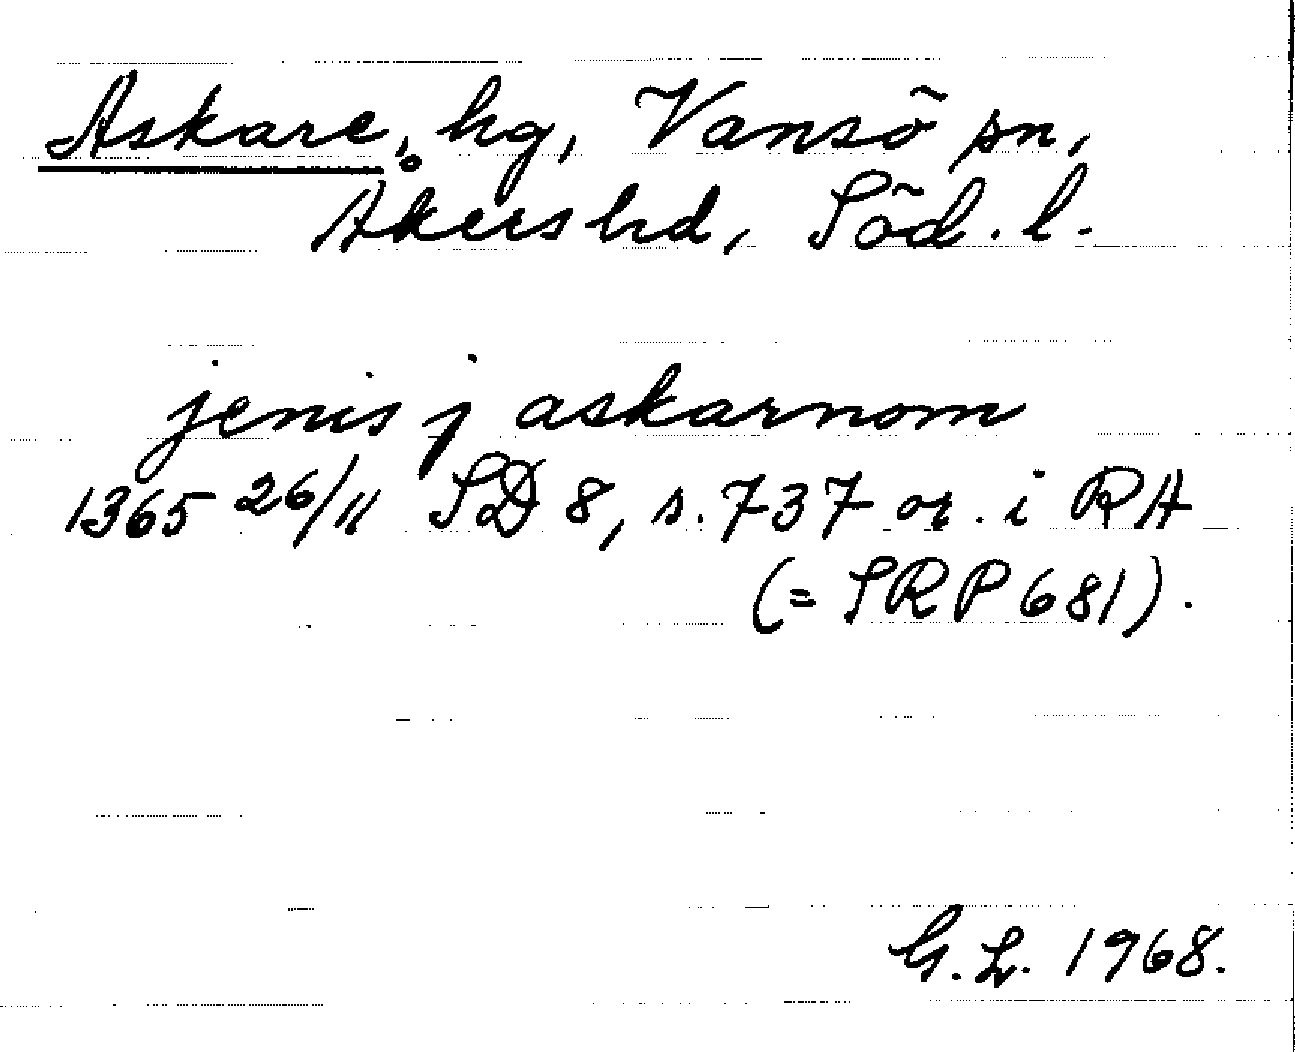 Askare, hg, Vansö sn,
Åkers hd, Söd. l.
jenis j askarnom
1365 26/11 SD 8, s. 737 or. i RA
(= SRP 681).
G. L. 1968.